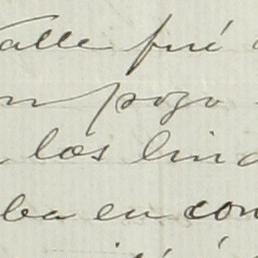 alle fué
on pozo
los lind
ba en con